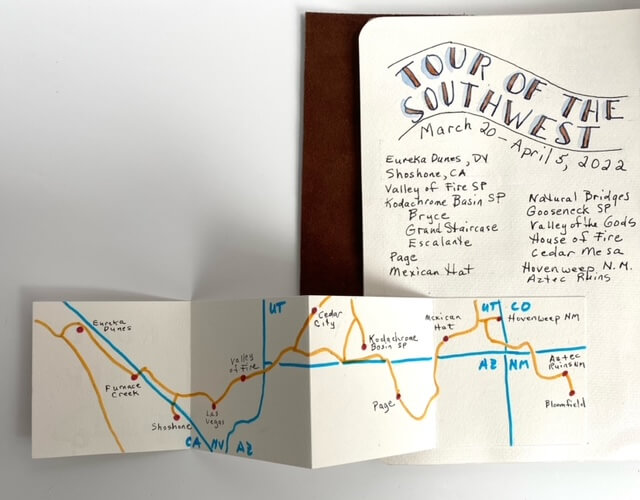 TOUR OF THE
SOUTHWEST
March 20 - April 5, 2022
Eureka Dunes, DV
Shoshone, CA
Valley of Fire SP
Kodachrome Basin SP
Bryce
Grand Staircase
Escalante
Page
Mexican Hat
Natural Bridges
Gooseneck SP
Valley of the Gods
House of Fire
Cedar Mesa
Hovenweep N.M.
Aztec Ruins
Eureka
Dunes
Furnace
Creek
Shoshone
Las
Vegas
Valley
of Fire
CA NV AZ
UT
Cedar
City
Kodachrome
Basin SP
Page
Mexican
Hat
UT CO
Hovenweep NM
AZ NM
Aztec
Ruins NM
Bloomfield